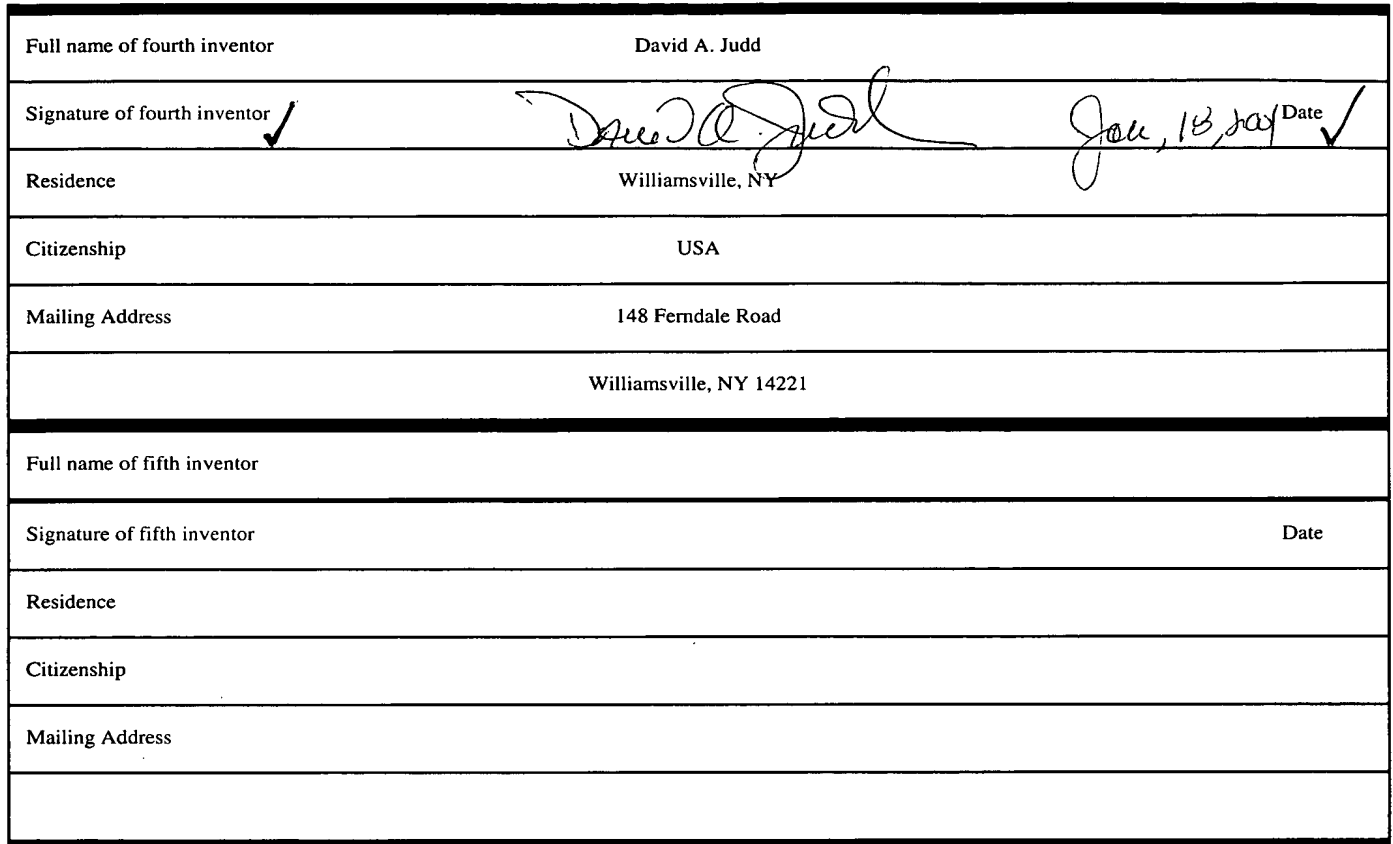 Full name of fourth inventor David A. Judd
Signature of fourth inventor David A. Judd Jan, 18, 2001 Date
Residence Williamsville, NY
Citizenship USA
Mailing Address 148 Ferndale Road
Williamsville, NY 14221
Full name of fifth inventor
Signature of fifth inventor Date
Residence
Citizenship
Mailing Address